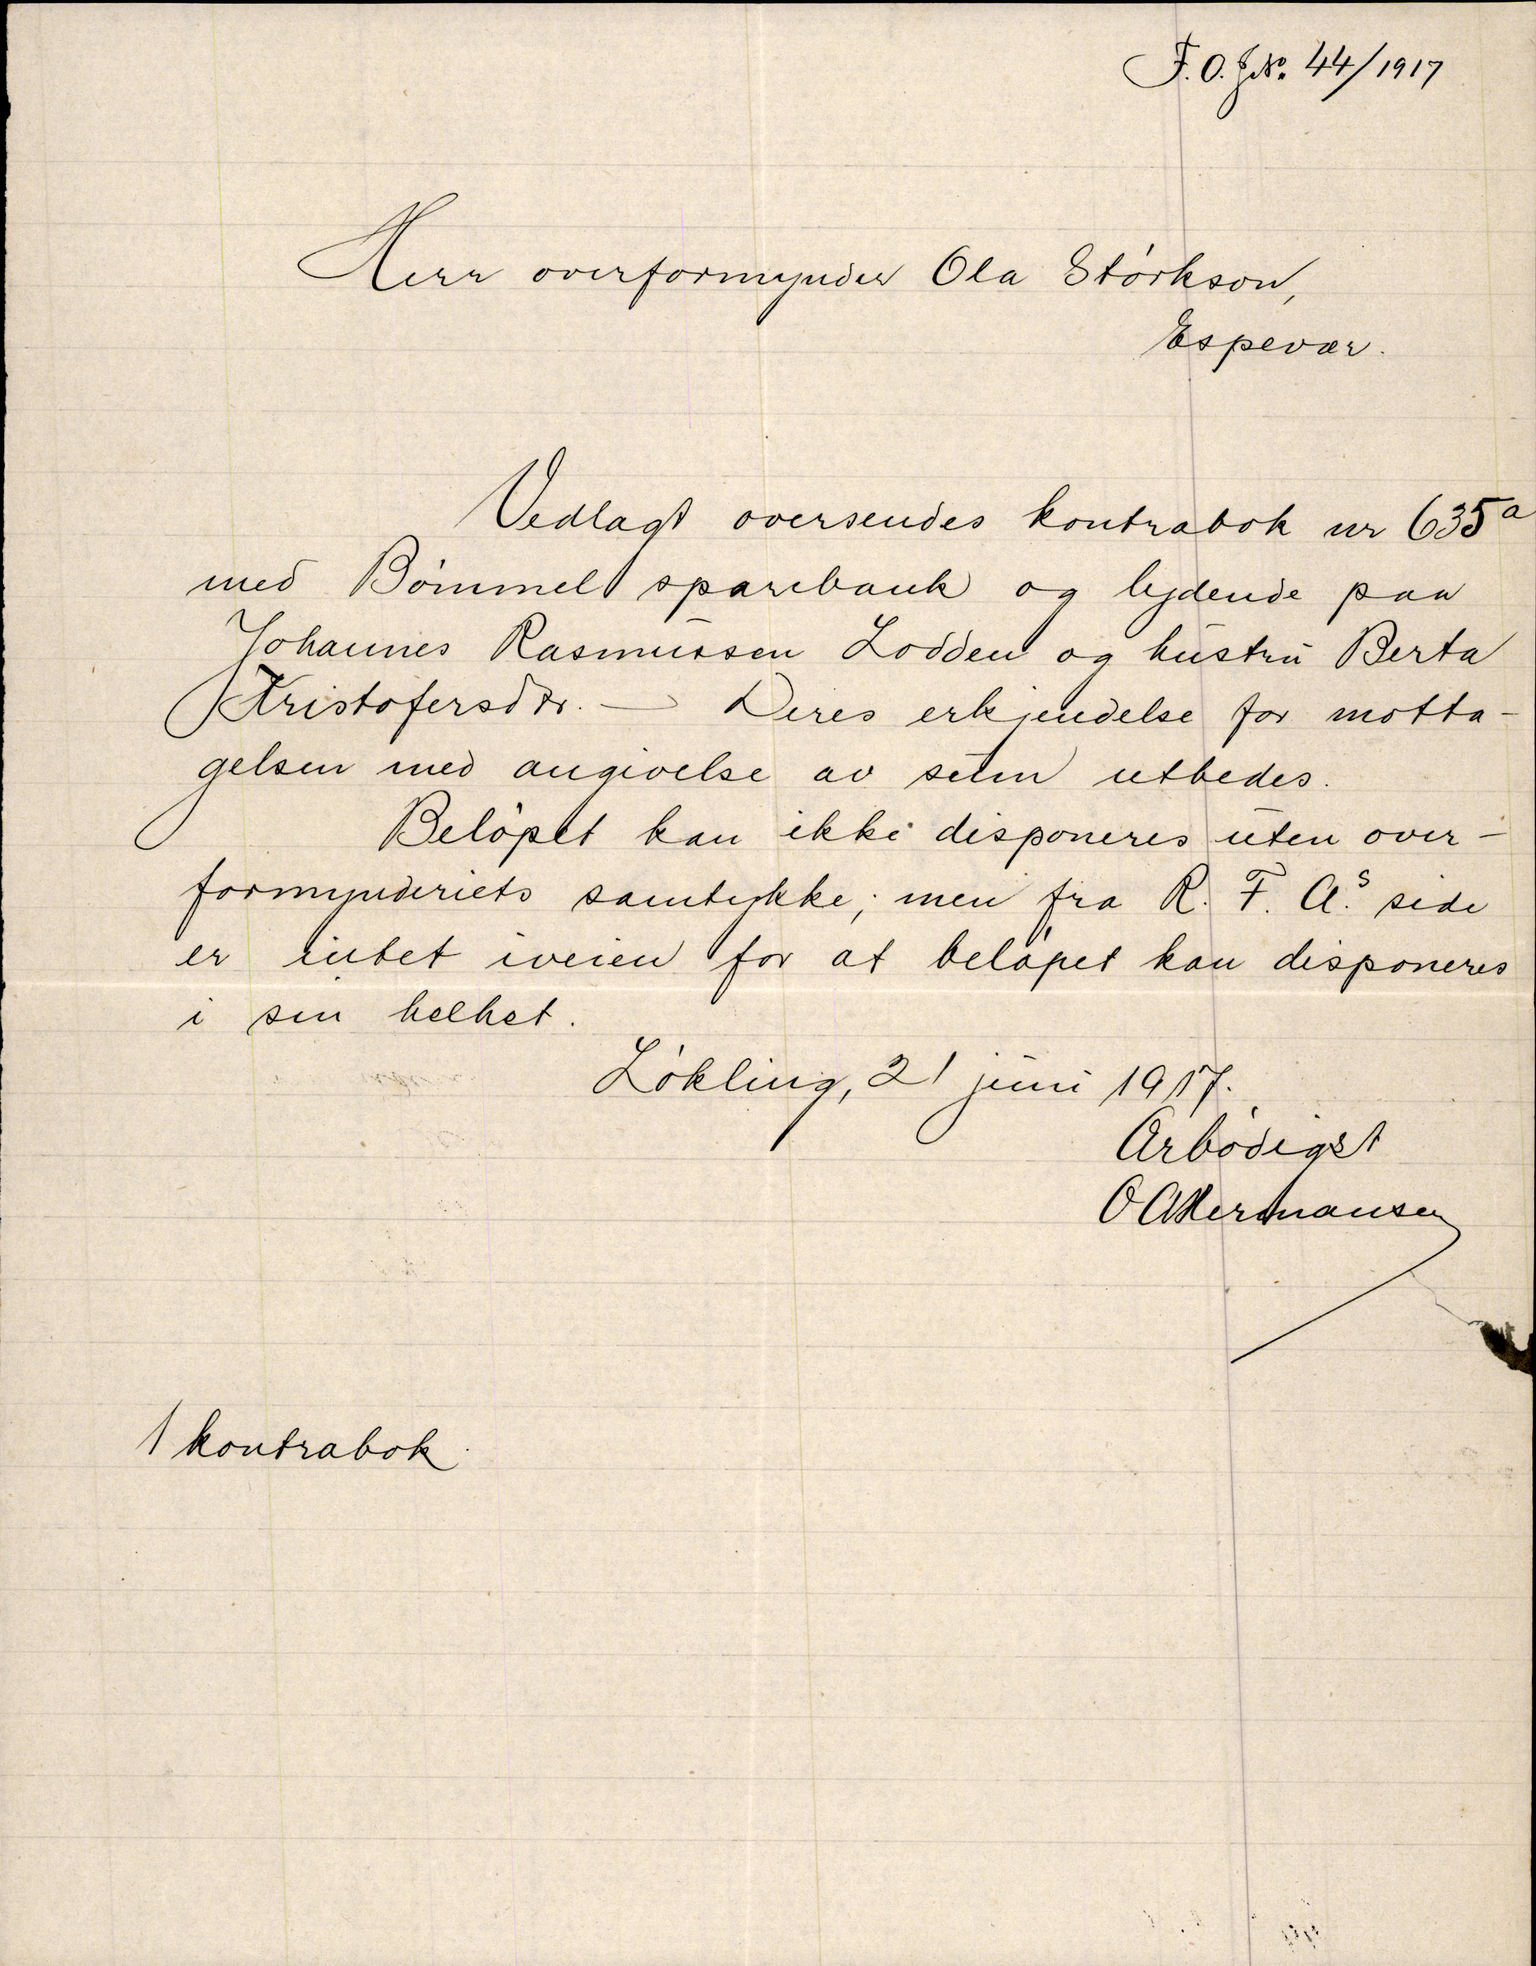 F. O. J.No. 44/1917
Herr overformynder Ola Størkson,
Espevær.
Vedlagt oversendes kontrabok nr 635a
med Bømmel sparebank og lydende paa
Johannes Rasmussen Lodden og hustru Berta
Kristofersdtr. — Deres erkjendelse for motta-
gelsen med angivelse av sum utbedes.
Beløpet kan ikke disponeres uten over-
formynderiets samtykke; men fra R. F. A.s side
er intet iveien for at beløpet kan disponeres
i sin helhet.
Løkling, 21 juni 1917.
Ærbødigst
O A Hermansen
1 kontrabok.